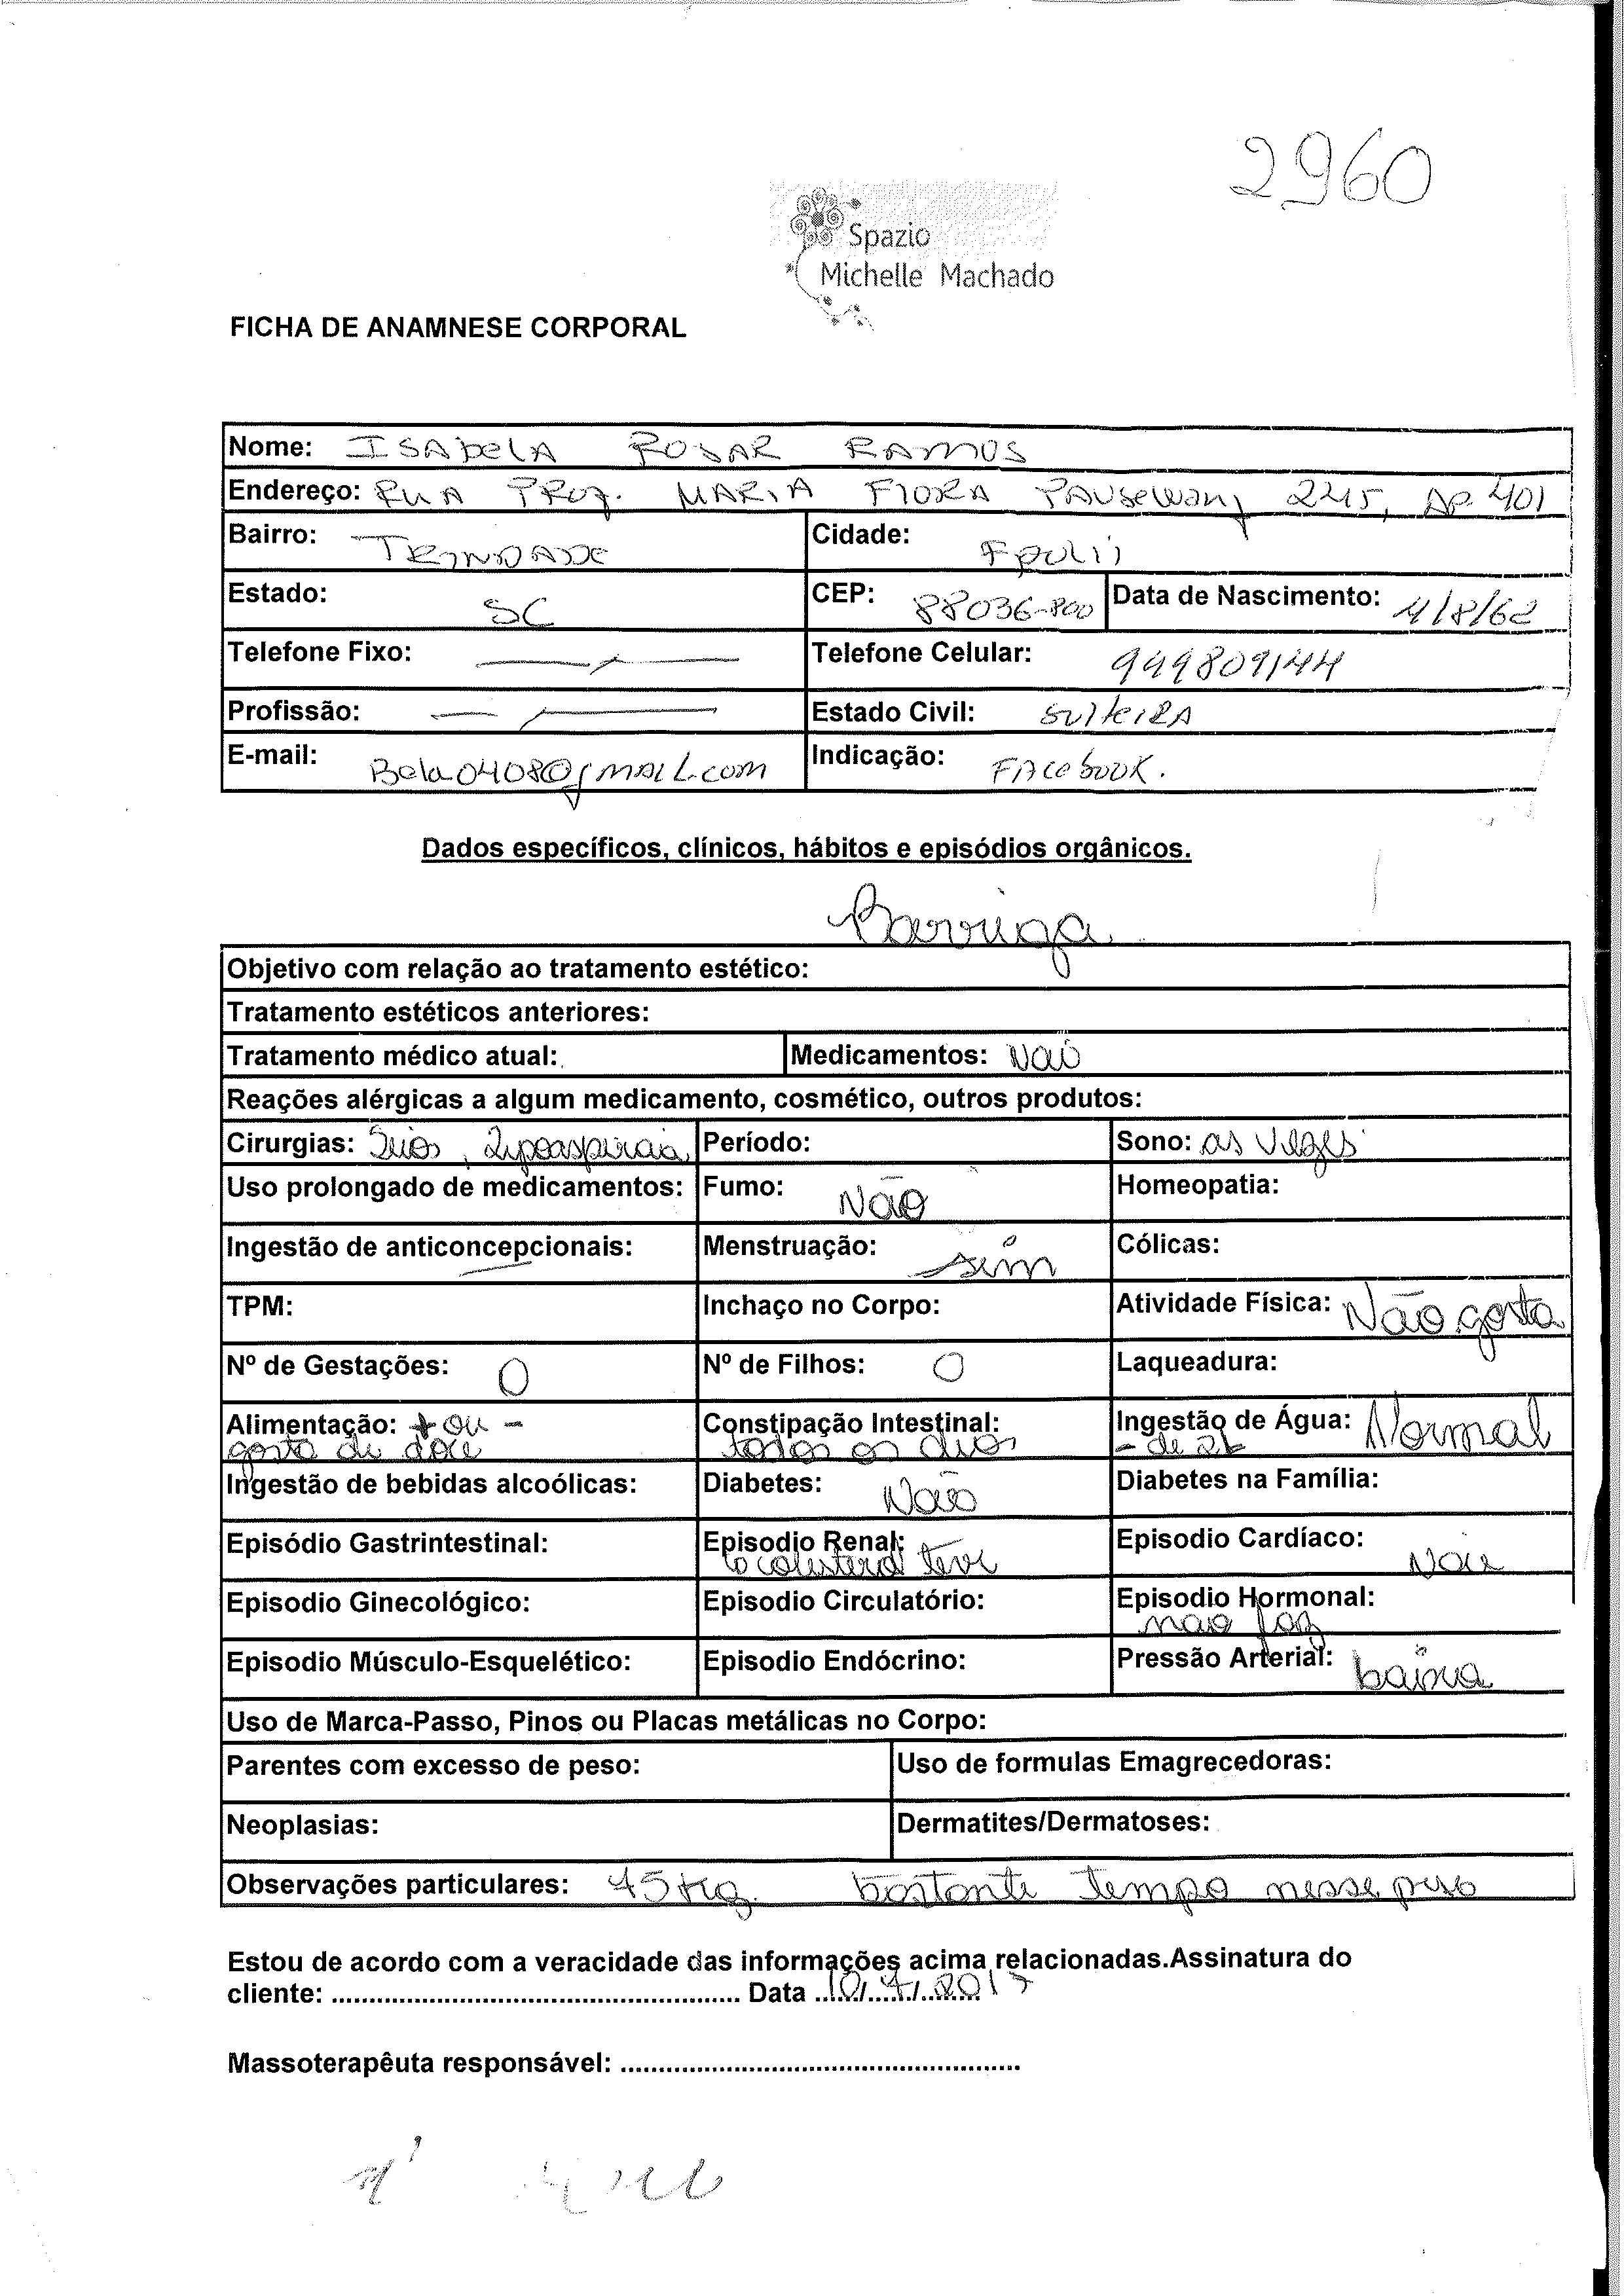 2960
Spazio
Michelle Machado
FICHA DE ANAMNESE CORPORAL
Nome: ISAbelA ROSAR RAMOS
Endereço: RUA PROf. MARIA FLORA PAUSEWANg 245, AP 401
Bairro: TRINDADE Cidade: Fpolis
Estado: SC CEP: 88036-800 Data de Nascimento: 4/8/62
Telefone Fixo: Telefone Celular: 999809144
Profissão: Estado Civil: SolteiRA
E-mail: Bela0408@gmail.com Indicação: FAcebook.
Dados específicos, clínicos, hábitos e episódios orgânicos.
Barriga
Objetivo com relação ao tratamento estético:
Tratamento estéticos anteriores:
Tratamento médico atual: Medicamentos: Não
Reações alérgicas a algum medicamento, cosmético, outros produtos:
Cirurgias: Seios, Lipoaspiração Período: Sono: as vezes
Uso prolongado de medicamentos: Fumo: Não Homeopatia:
Ingestão de anticoncepcionais: Menstruação: sim Cólicas:
TPM: Inchaço no Corpo: Atividade Física: Não gosta
Nº de Gestações: 0 Nº de Filhos: 0 Laqueadura:
Alimentação: + ou - Constipação Intestinal: Ingestão de Água: Normal
gosta de doce todos os dias - de 2L
Ingestão de bebidas alcoólicas: Diabetes: Não Diabetes na Família:
Episódio Gastrintestinal: Episodio Renal: Episodio Cardíaco: Não
colesterol teve
Episodio Ginecológico: Episodio Circulatório: Episodio Hormonal:
não faz
Episodio Músculo-Esquelético: Episodio Endócrino: Pressão Arterial: baixa
Uso de Marca-Passo, Pinos ou Placas metálicas no Corpo:
Parentes com excesso de peso: Uso de formulas Emagrecedoras:
Neoplasias: Dermatites/Dermatoses:
Observações particulares: 45 Kg. bastante tempo nesse peso
Estou de acordo com a veracidade das informações acima relacionadas.Assinatura do
cliente: ...................................................... Data 10/7/2017
Massoterapêuta responsável: .....................................................